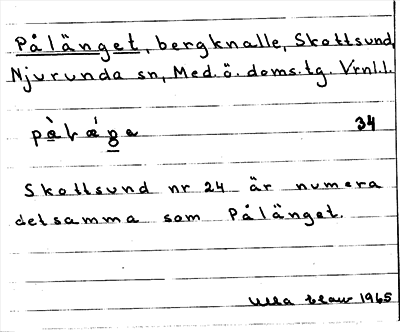 Pålänget, bergknalle, Skottsund,
Njurunda sn, Med. ö. doms.tg. Vrnl.l.
34
Skottsund nr 24 är numera
detsamma som Pålänget.
Ulla 1965